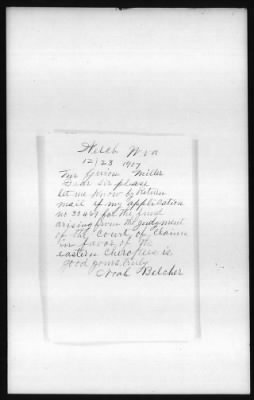 Welch W va
12/23 1907
Mr Guion Miller
Dear sir please
let me know by Return
mail if my application
for the fund
arising from the Judgment
of the Court of Claims
in favor of the
eastern cherokees is
good yours truly
Noah Belcher